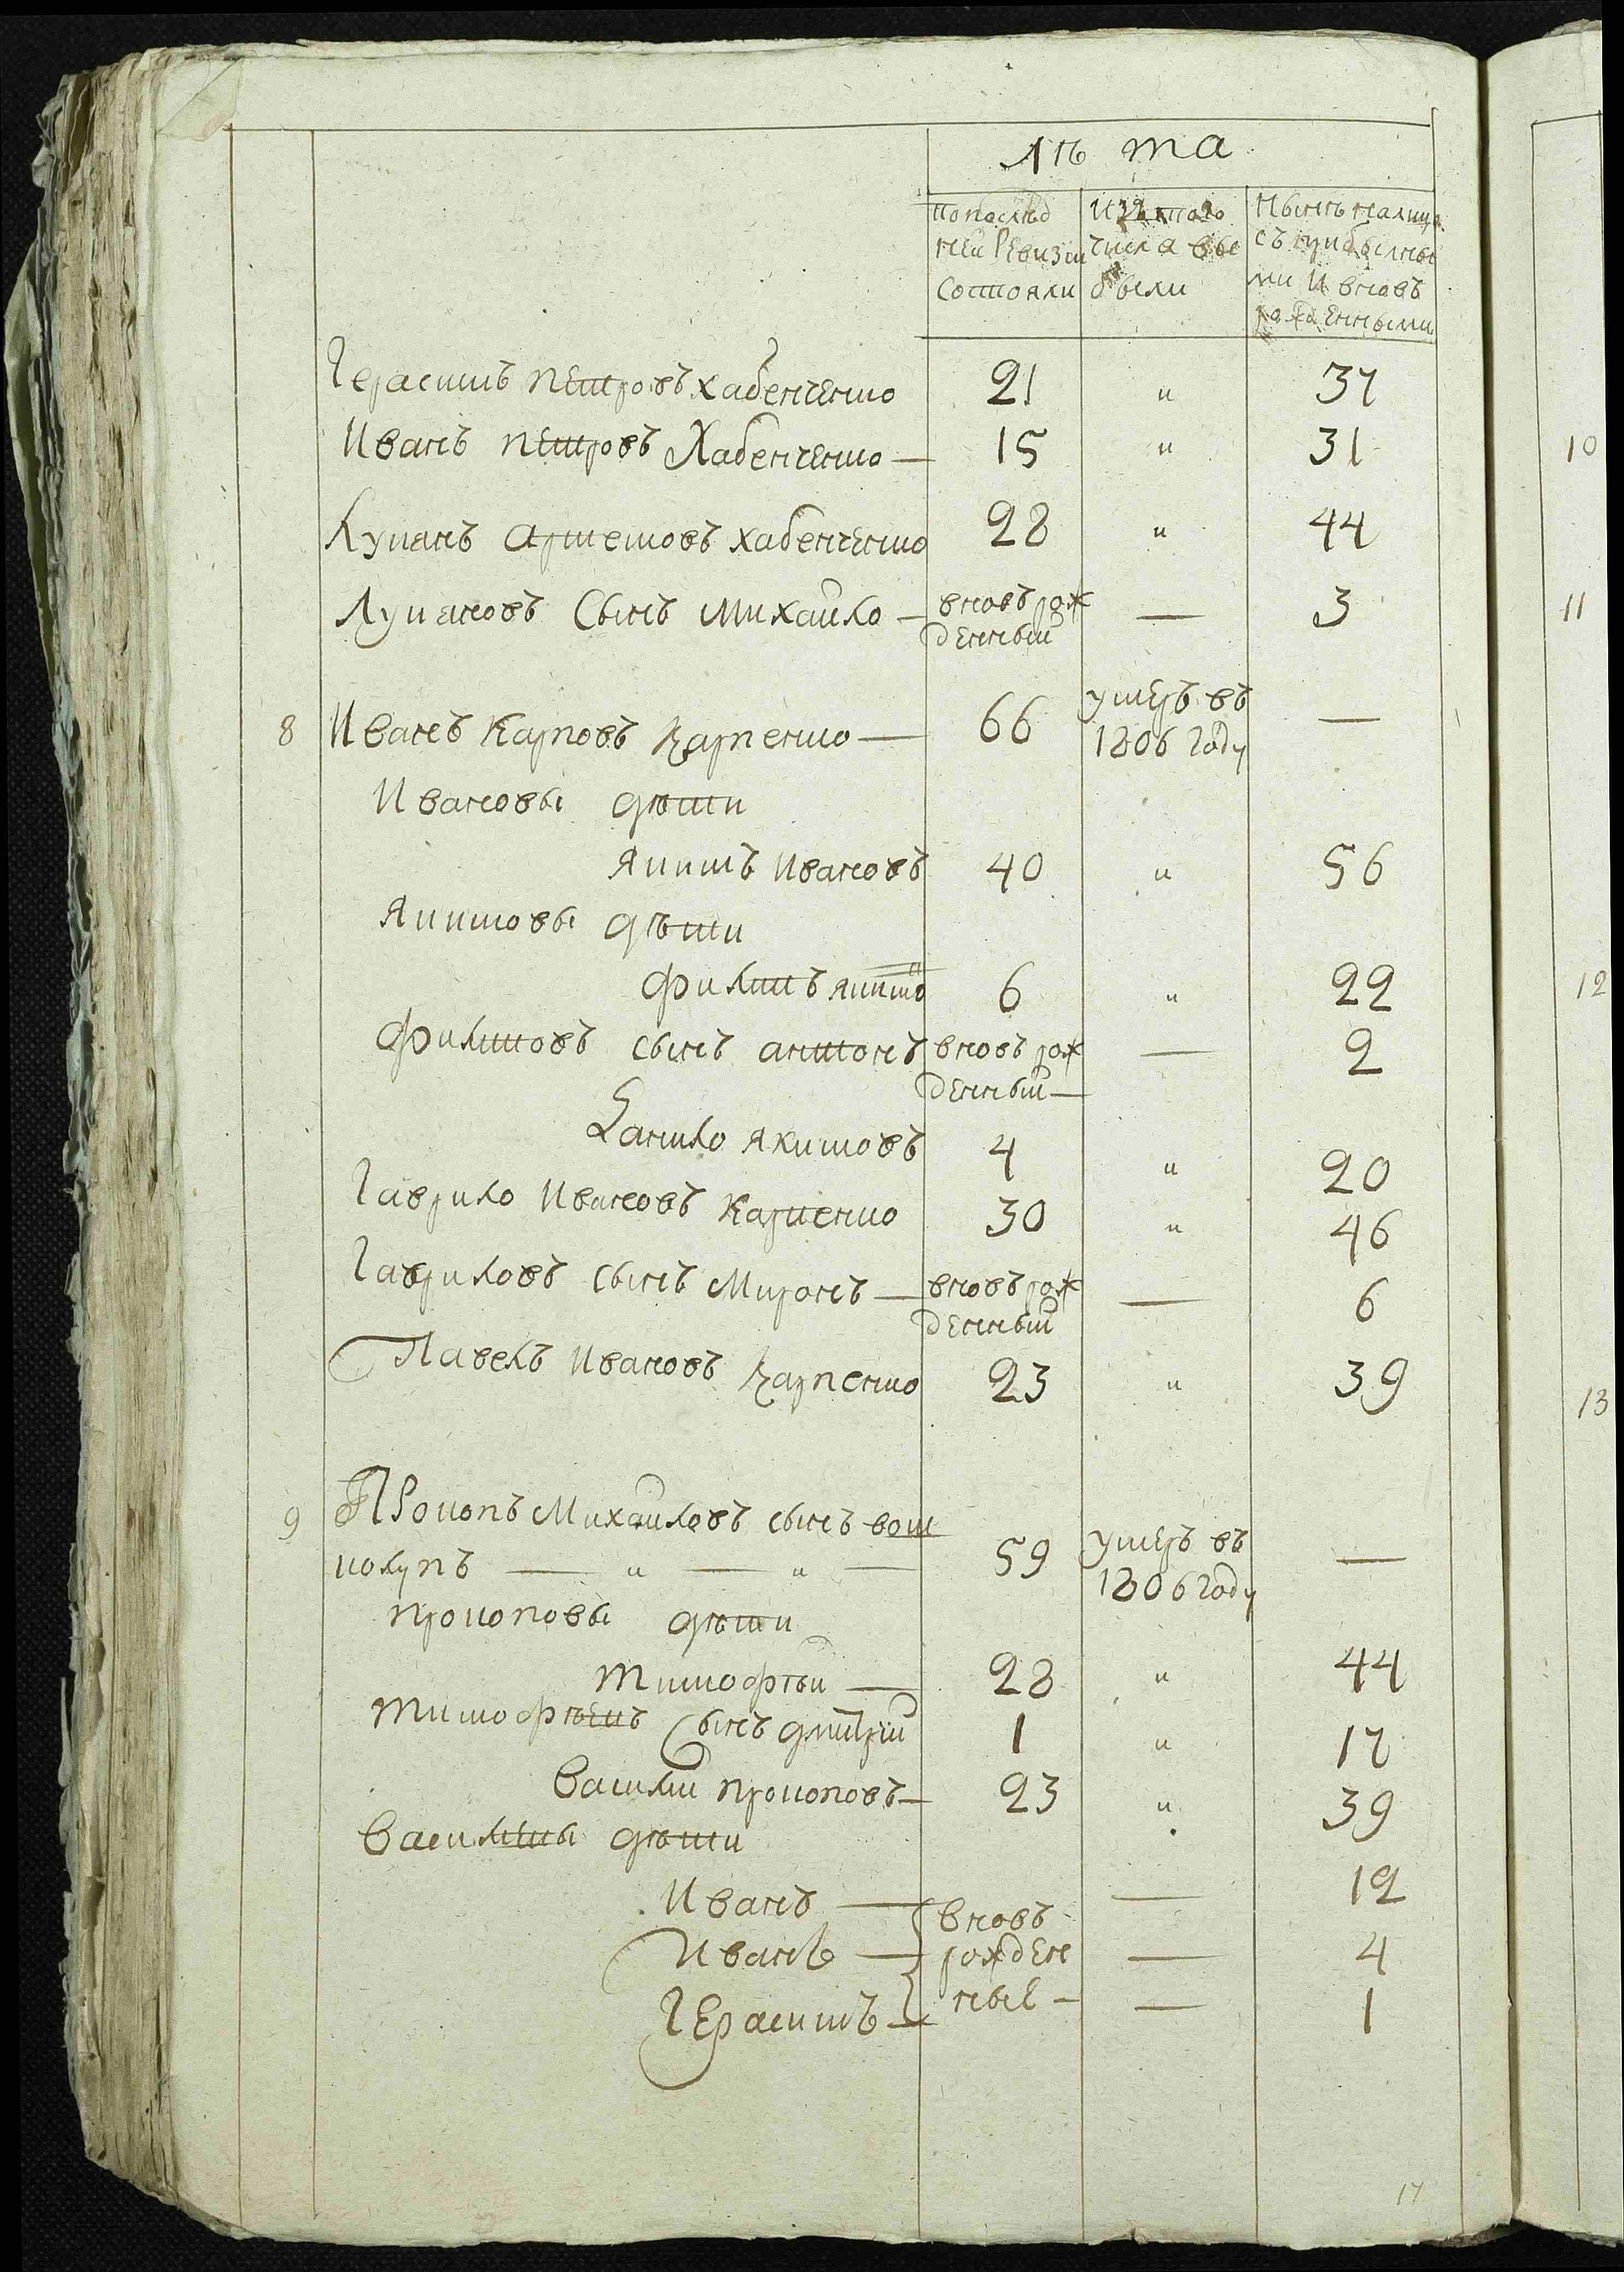 лѣта
по послѣд изъ того Нынѣ налицо
ней Ревизіи числа вы съ прибылны
состояли были ми и вновь
рожденными
Герасимъ Петровъ Хабенченко 21 " 37
Иванъ Петровъ Хабенченко — 15 " 31
10
Лукянъ Артемовъ Хабенченко 28 " 44
Лукяновъ Сынъ Михайло — вновь рож — 3
11
денный
8 Иванъ Карповъ Карпенко — 66 умеръ въ —
1806 году
Ивановы дѣти
Якимъ Ивановъ 40 " 56
Якимовы дѣти
Филипъ Якимо 6 " 22
12
Филиповъ сынъ антонъ вновь рож — 2
денный —
Данило Якимовъ 4 " 20
Гаврило Ивановъ Карпенко 30 " 46
Гавриловъ сынъ Миронъ — вновь рож — 6
денный
Павелъ Ивановъ Карпенко 23 " 39
13
9 Прокопъ Михайловъ сынъ вов
колупъ — " — " — 59 умеръ въ —
1806 году
прокоповы дѣти
тимофѣй — 28 " 44
тимофѣевъ Сынъ дмитрій 1 " 17
Василій прокоповъ — 23 " 39
Василіевы дѣти
Иванъ — вновь — 12
Иванъ — рожден — 4
Герасимъ — ные — — 1
17